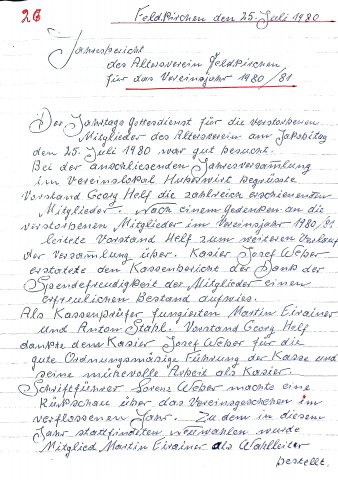 26
Feldkirchen den 25. Juli 1980
Jahresbericht
des Altersverein Feldkirchen
für das Vereinsjahr 1980/81
Der Jahrtags Gottesdienst für die verstorbenen
Mitglieder des Altersverein am Jakobitag
den 25. Juli 1980 war gut besucht.
Bei der anschliesenden Jahresversamlung
im Vereinslokal Huberwirt begrüste
Vorstand Georg Helf die zahlreich erschienenen
Mitglieder. Nach einem Gedenken an die
verstorbenen Mitglieder im Vereinsjahr 1980/81
leitete Vorstand Helf zum weiteren Verlauf
der Versamlung über. Kasier Josef Weber
erstatete den Kassenbericht der Dank der
Spendefreudigkeit der Mitglieder einen
erfreulichen Bestand aufwies.
Als Kassenprüfer fungierten Martin Eirainer
und Anton Stahl. Vorstand Georg Helf
dankte dem Kasier Josef Weber für die
gute Ordnungsmäsige Führung der Kasse und
seine mühevolle Arbeit als Kasier.
Schriftführer Lorenz Weber machte eine
Rückschau über das Vereinsgeschehen im
verflossenen Jahr. Zu dem in diesem
Jahr stattfindeten Neuwahlen wurde
Mitglied Martin Eirainer als Wahlleiter
bestellt.